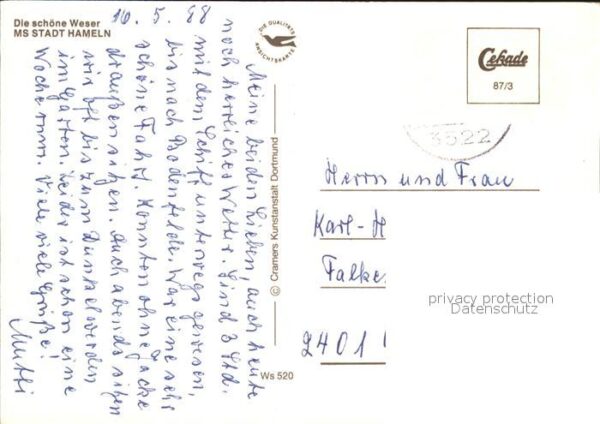 Die schöne Weser
MS STADT HAMELN
16. 5. 88
DIE QUALITÄTS
ANSICHTSKARTE
Cekade
87/3
3522
Meine beiden Lieben, auch heute
noch herrliches Wetter. Sind 3 Std.
mit dem Schiff unterwegs gewesen,
bis nach Bodenfelde. War eine sehr
schöne Fahrt. Konnten ohne Jacke
draußen sitzen. Auch abends sitzen
wir oft bis zum Dunkelwerden
im Garten. Leider ist schon eine
Woche rum. Viele viele Grüße!
Mutti
© Cramers Kunstanstalt Dortmund
Ws 520
Herrn und Frau
Karl-H
Falke
2401
privacy protection
Datenschutz